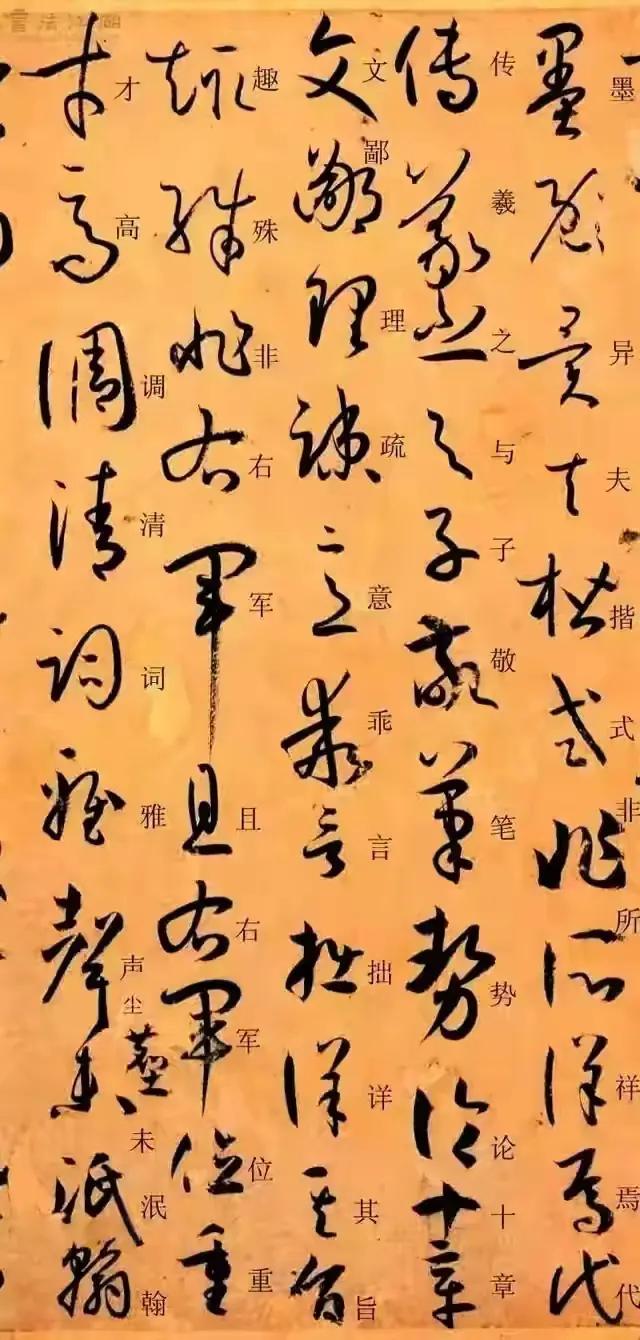 書法江湖
墨异夫揩式非所祥焉代
传羲之与子敬笔势论十章
文鄙理疏意乖言拙详其旨
趣殊非右军且右军位重
才高调清词雅声尘未泯翰